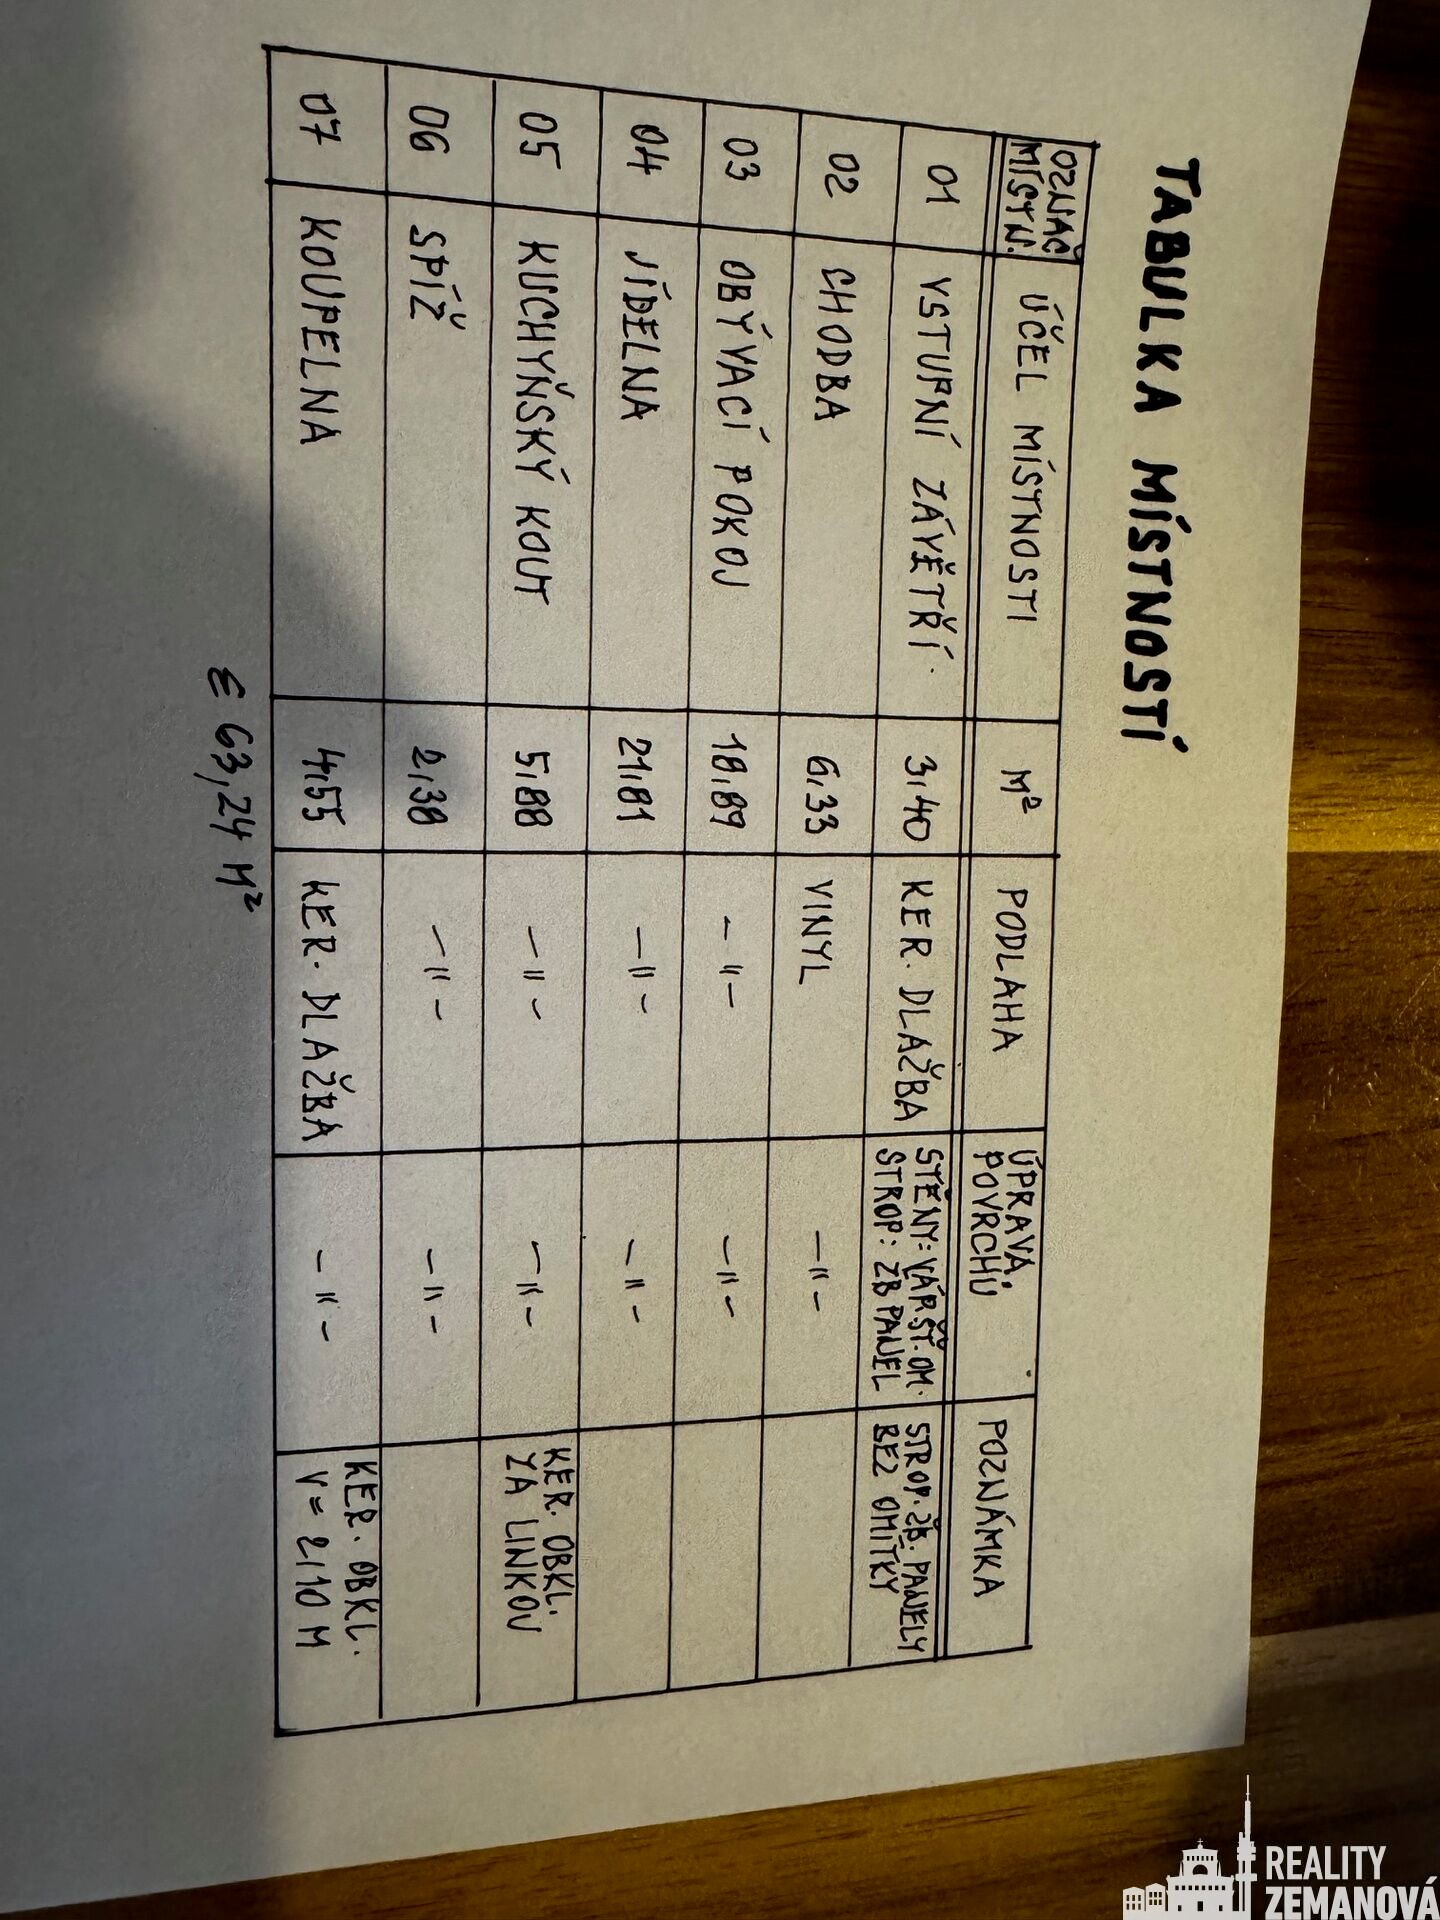 TABULKA MÍSTNOSTÍ
OZNAČ MÍSTN. ÚČEL MÍSTNOSTI M² PODLAHA ÚPRAVA POVRCHŮ POZNÁMKA
01 VSTUPNÍ ZÁVĚTŘÍ 3,40 KER. DLAŽBA STĚNY: VÁPŠT. OM. STROP: ŽB PANEL STROP. ŽB. PANELY BEZ OMÍTKY
02 CHODBA 6,33 VINYL -"-
03 OBÝVACÍ POKOJ 18,89 -"- -"-
04 JÍDELNA 21,81 -"- -"-
05 KUCHYŇSKÝ KOUT 5,88 -"- -"- KER. OBKL. ZA LINKOU
06 SPÍŽ 2,38 -"- -"-
07 KOUPELNA 4,55 KER. DLAŽBA -"- KER. OBKL. V = 2,10 M
Σ 63,24 M²
REALITY
ZEMANOVÁ